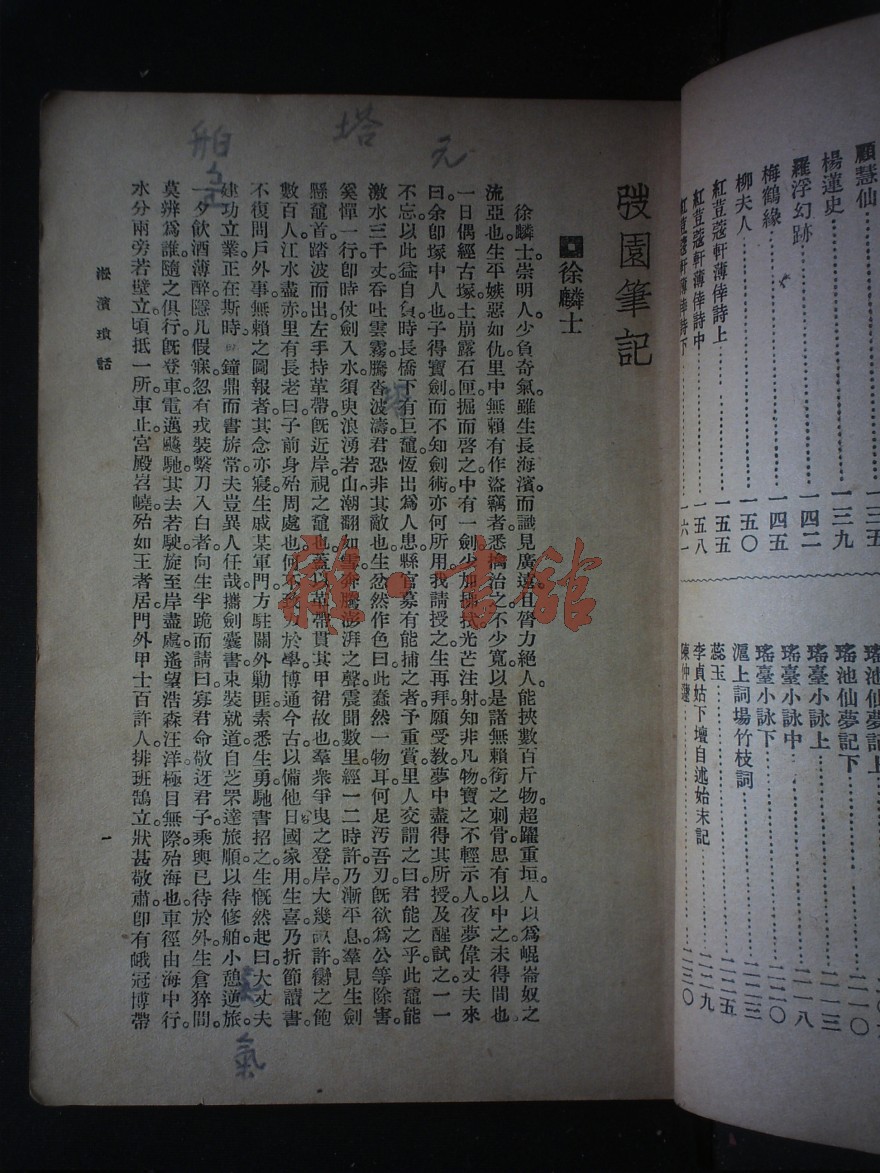 顧慧仙……一三五
楊蓮史……一三九
羅浮幻跡……一四二
梅鶴緣……一四五
柳夫人……一五〇
紅荳蔻軒薄倖詩上……一五五
紅荳蔻軒薄倖詩中……一五八
紅荳蔻軒薄倖詩下……一六一
瑤池仙夢記上
瑤池仙夢記下……二一〇
瑤臺小詠上……二一三
瑤臺小詠中……二一八
瑤臺小詠下……二二〇
滬上詞場竹枝詞……二二三
蕊玉……二二五
李貞姑下壇自述始末記……二二九
陳仲蘧……二三〇
弢園筆記
徐麟士
徐麟士崇明人。少負奇氣。雖生長海濱。而識見廣遠。且膂力絕人。能挾數百斤物。超躍重垣。人以爲崐崙奴之
流亞也。生平嫉惡如仇。里中無賴有作盜竊者。悉擒治之。不少寬。以是諸無賴銜之刺骨。思有以中之。未得間也。
一日偶經古塚。土崩露石匣。掘而啓之。中有一劍。少加拂拭。光芒注射。知非凡物。寶之不輕示人。夜夢偉丈夫來
曰。余卽塚中人也。子得寶劍而不知劍術。亦何所用。我請授之。生再拜願受教。夢中盡得其所授。及醒試之。一一
不忘。以此益自負。時長橋下有巨鼋。恆出爲人患。縣官募有能捕之者。予重賞。里人交謂之曰。君能之乎。此鼋能
激水三千丈。吞吐雲霧。騰沓波濤。君恐非其敵也。生忿然作色曰。此蠢然一物耳。何足污吾刃。旣欲爲公等除害。
奚憚一行。卽時仗劍入水。須臾浪湧若山。潮翻如雪。騰澎湃之聲。震聞數里。經一二時許。乃漸平息。羣見生劍
懸鼋首。踏波而出。左手持革帶。旣近岸。視之鼋也。蓋以革帶貫其甲裙故也。羣衆爭曳之登岸。大幾畝許。臠之飽
數百人。江水盡赤。里有長老曰。子前身殆周處也。何不致力於學。博通今古。以備他日國家用。生喜。乃折節讀書。
不復問戶外事。無賴之圖報者。其念亦寢。生戚某軍門。方駐關外勦匪。素悉生勇。馳書招之。生慨然起曰。大丈夫
建功立業。正在斯時。鐘鼎而書旂常。夫豈異人任哉。攜劍囊書。束裝就道。自芝罘達旅順。以待修舶。小憩逆旅。
一夕飲酒薄醉。隱几假寐。忽有戎裝繫刀入白者。向生半跪而請曰。寡君命敬迓君子。乘輿已待於外。生倉猝間。
莫辨爲誰。隨之俱行。旣登車。電邁飈馳。其去若駛。旋至岸盡處。遙望浩森汪洋。極目無際。殆海也。車徑由海中行。
水分兩旁若壁立。頃抵一所。車止。宮殿岧嶢。殆如王者居。門外甲士百許人。排班鵠立。狀甚敬肅。卽有峨冠博帶
淞濱瑣話
一
元
塔
舶
氣
雜·書館